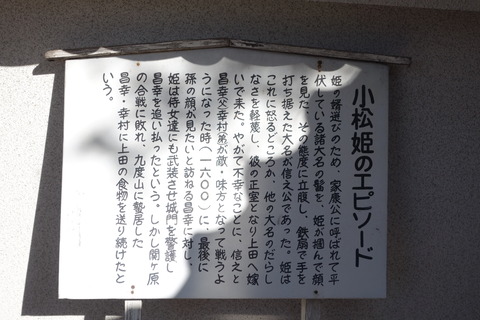 小松姫のエピソード
姫の婿選びのため、家康公に呼ばれて平
伏している諸大名の髷を、姫が掴んで顔
を見た。その態度に立腹し、鉄扇で手を
打ち据えた大名が信え公であった。姫は
これに怒るどころか、他の大名のだらし
なさを軽蔑し、彼の正室となり上田へ嫁
いで来た。やがて不幸なことに、信えと
昌幸(父)幸村(弟)が敵・味方となって戦うよ
うになった時(一六〇〇)に、最後に
孫の顔が見たいと訪ねる昌幸に対し、
姫は侍女達にも武装させ城門を警護し
昌幸を追い払ったという。しかし関ヶ原
の合戦に敗れ、九度山に蟄居した
昌幸・幸村に上田の食物を送り続けたと
いう。